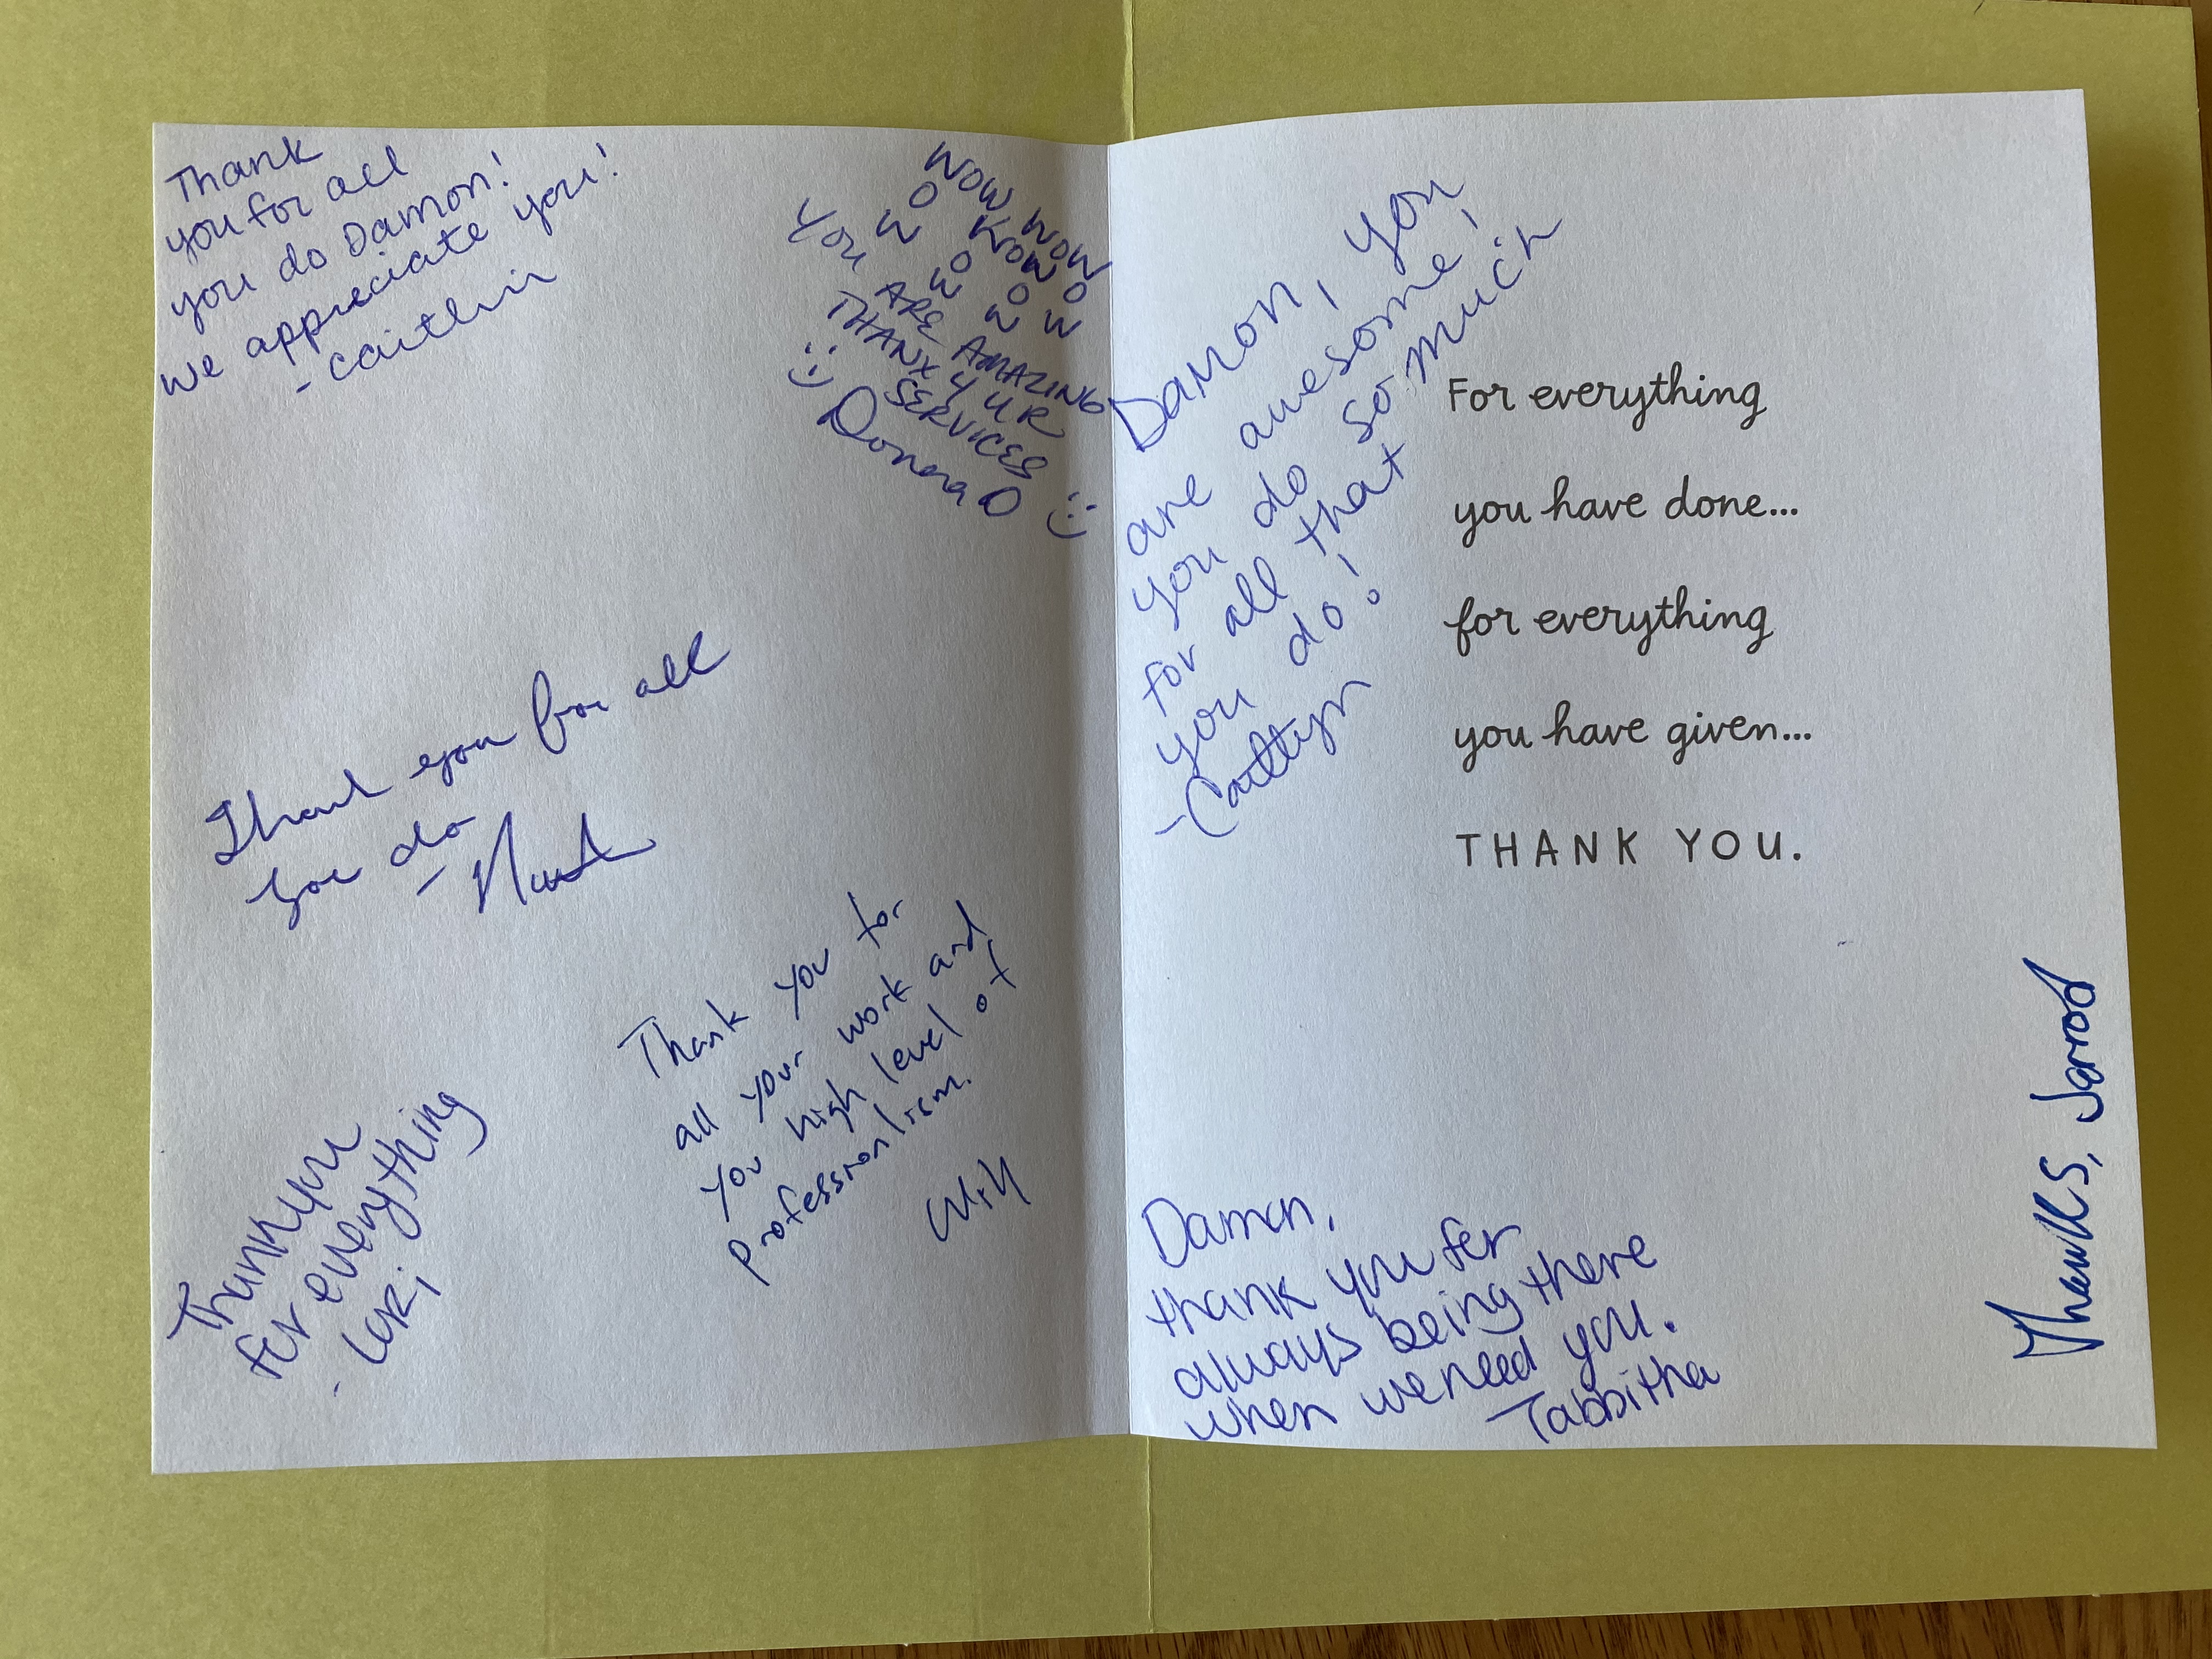 Thank
you for all
you do Damon!
we appreciate you!
- Caitlin
WOW WOW
WOW
YOU ARE AMAZING
THANX 4 UR
SERVICES
:) Donna D :)
Thank you for all
you do
Thank you for
all your work and
you high level of
professionlism.
Will
Thank you
for everything
- Lori
Damon, you
are awesome!
you do so much
for all that
you do!
- Caitlyn
For everything
you have done...
for everything
you have given...
THANK YOU.
Thanks, Jarrod
Damon,
thank you for
always being there
when we need you.
Tabbitha